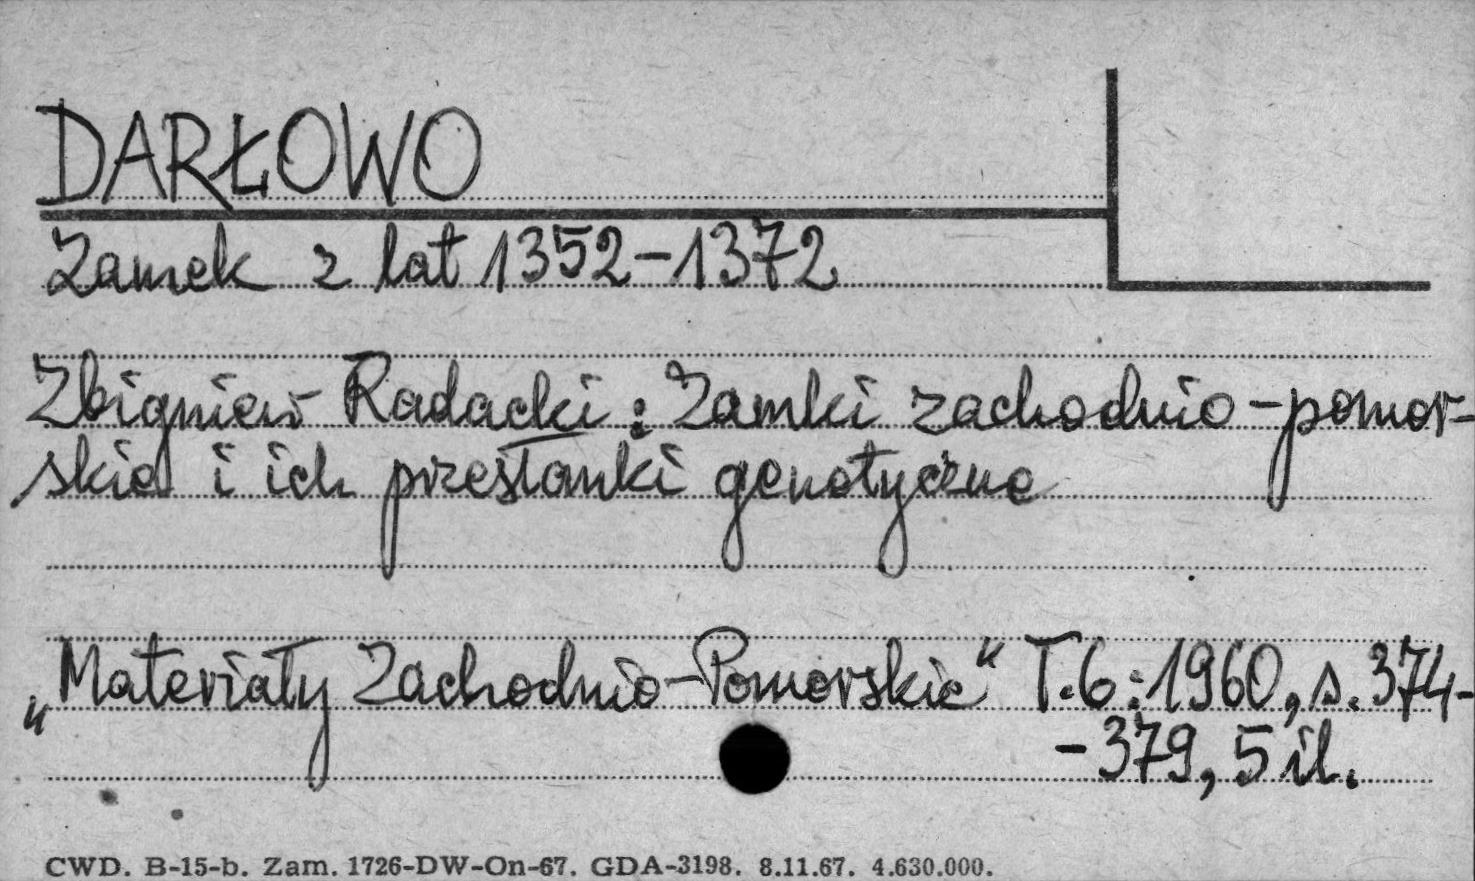 DARŁOWO
Zamek z lat 1352-1372
Zbigniew Radacki: Zamki zachodnio-pomor-
skie i ich przesłanki genetyczne
„Materiały Zachodnio-Pomorskie" T.6:1960, s. 374-
-379, 5 il.
CWD. B-15-b. Zam. 1726-DW-On-67. GDA-3198. 8.11.67. 4.630.000.